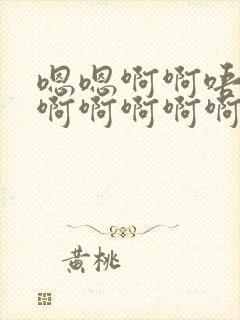 嗯嗯啊啊唔
啊啊啊啊啊
黄桃